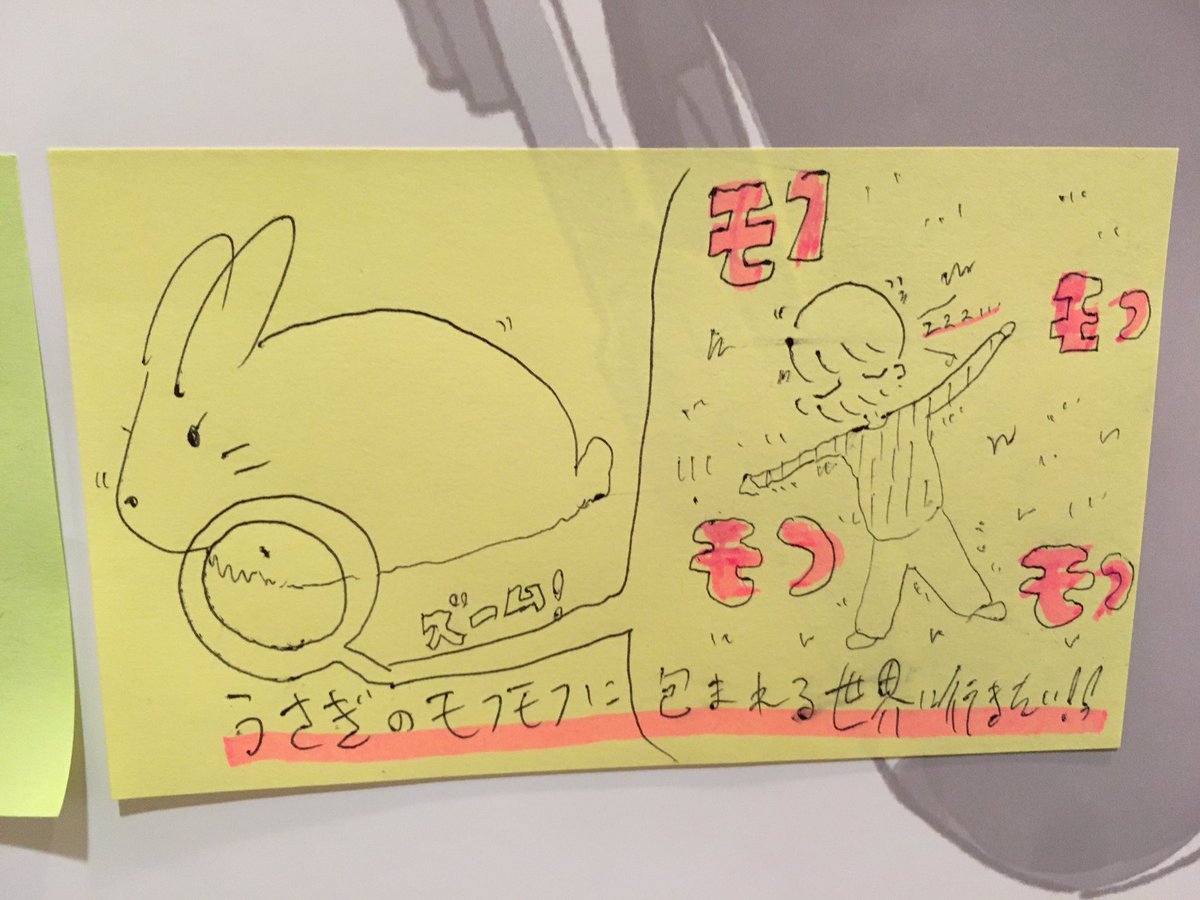 ズーム!
モフ
zzz...
モフ
モフ
モフ
うさぎのモフモフに包まれる世界に行きたい!!